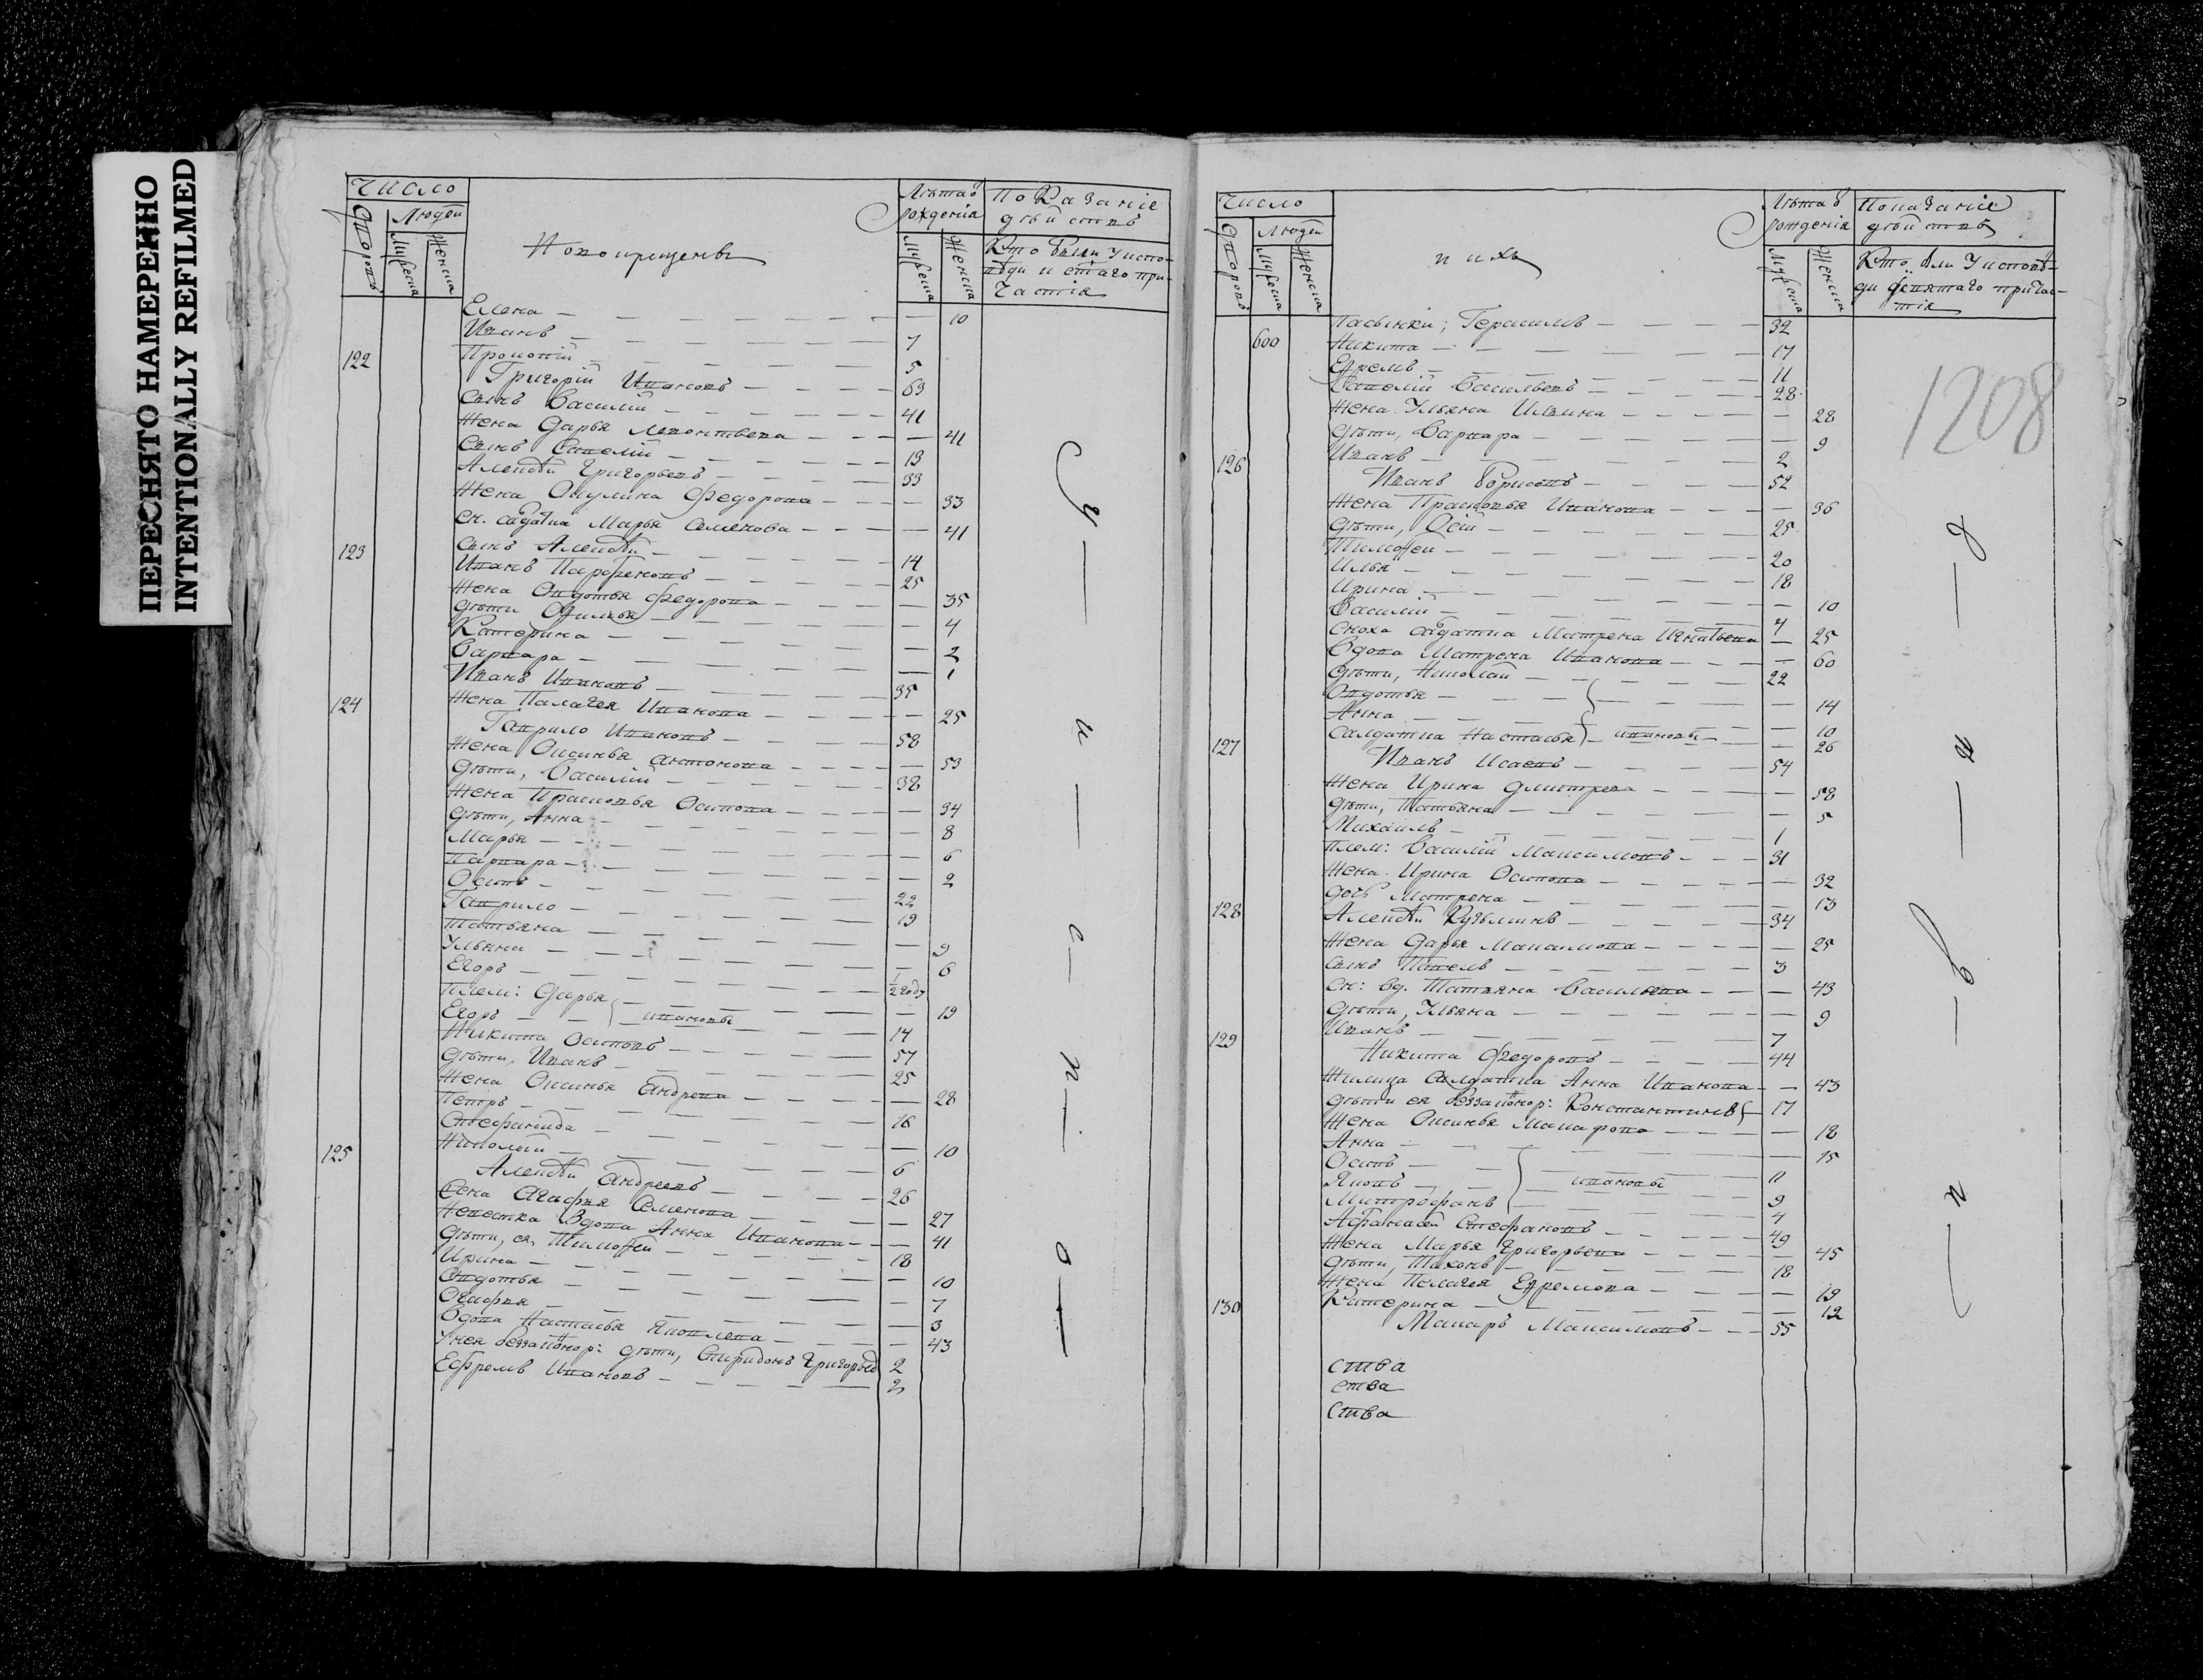 ПЕРЕСНЯТО НАМЕРЕННО
INTENTIONALLY REFILMED
Число
Дворовъ
Людей
Мужеска
Женска
Новокрещены
Лѣта отъ рожденія
Мужеска
Женска
Показаніе дѣйствъ
Кто были у испо-
вѣди и святаго при-
частія
Елена - 10
Иванъ - 7
Прокопій - 5
122 Григорій Ивановъ - 69
Сынъ Василій - 41
Жена Дарья Леонтьева - 41
Сынъ Савелій - 19
Алексѣй Григорьевъ - 33
Жена Акулина Федорова - 33
Сн. салдатка Марья Семенова - 41
Сынъ Алексѣй - 14
123 Иванъ Парфеновъ - 25
Жена Овдотья Федорова - 35
Дѣти - 4
Катерина - 2
Варвара - 1
Иванъ Ивановъ - 35
Жена Палагея Иванова - 25
124 Гаврило Ивановъ - 58
Жена Оксинья Антонова - 53
Дѣти, Василій - 32
Жена Прасковья Осипова - 34
Дѣти, Анна - 8
Марья - 6
Варвара - 2
Осипъ - 22
Гаврило - 19
Татьяна - 9
Ульяна - 6
Егоръ - 1/2 году
Плем: Дарья - 19
Егоръ } Ивановы 14
Никита Осиповъ - 57
Дѣти, Иванъ - 25
Жена Оксинья Андреева - 28
Петръ - 16
Стефанида - 10
Николай - 6
125 Алексѣй Андреевъ - 26
Жена Агафья Семенова - 27
Невестка вдова Анна Иванова - 41
Дѣти, ея, Тимоѳей - 18
Ирина - 10
Овдотья - 7
Агафья - 3
Вдова Настасья Яковлева - 43
У нея беззаконнор: дѣти, Спиридонъ Григорьевъ 2
Ефремъ Ивановъ - 2
у - к - с - п - о -
Число
Дворовъ
Людей
Мужеска
Женска
ихъ
Лѣта отъ рожденія
Мужеска
Женска
Показаніе дѣйствъ
Кто были у исповѣ-
ди и святаго причас-
тія
1208
Пасынки; Герасимъ - 32
600 Никита - 17
Ефремъ - 11
Савелій Васильевъ - 28
Жена Ульяна Ильина - 28
Дѣти, Варвара - 9
Иванъ - 2
126 Иванъ Борисовъ - 52
Жена Прасковья Иванова - 36
Дѣти, - 25
Тимоѳей - 20
Илья - 18
Ирина - 10
Василій - 4
Сноха салдатка Матрена Игнатьева - 25
Вдова Матрена Иванова - 60
Дѣти, Николай - 22
Овдотья - 14
Анна - 10
Салдатка Настасья } Ивановы - 26
127 Иванъ Исаевъ - 54
Жена Ирина Дмитрева - 58
Дѣти, Татьяна - 5
Михаилъ - 1
Плем: Василій Максимовъ - 31
Жена Ирина Осипова - 32
Дочь Матрена - 13
128 Алексѣй Кузьминъ - 34
Жена Дарья Максимова - 25
Сынъ Павелъ - 3
Сн: вд. Татьяна Васильева - 43
Дѣти, Ульяна - 9
Иванъ - 7
129 Никита Федоровъ - 44
Жилица салдатка Анна Иванова - 43
Дѣти ея беззаконнор: Константинъ - 17
Жена Оксинья Макарова - 18
Анна - 15
Осипъ - 11
Яковъ - Ивановы 9
Митрофанъ - 4
Афанасей Стефановъ - 49
Жена Марья Григорьева - 45
Дѣти, Тихонъ - 18
Жена Пелагея Ефремова - 19
Катерина - 12
130 Макаръ Максимовъ - 55
ства
ства
Ства